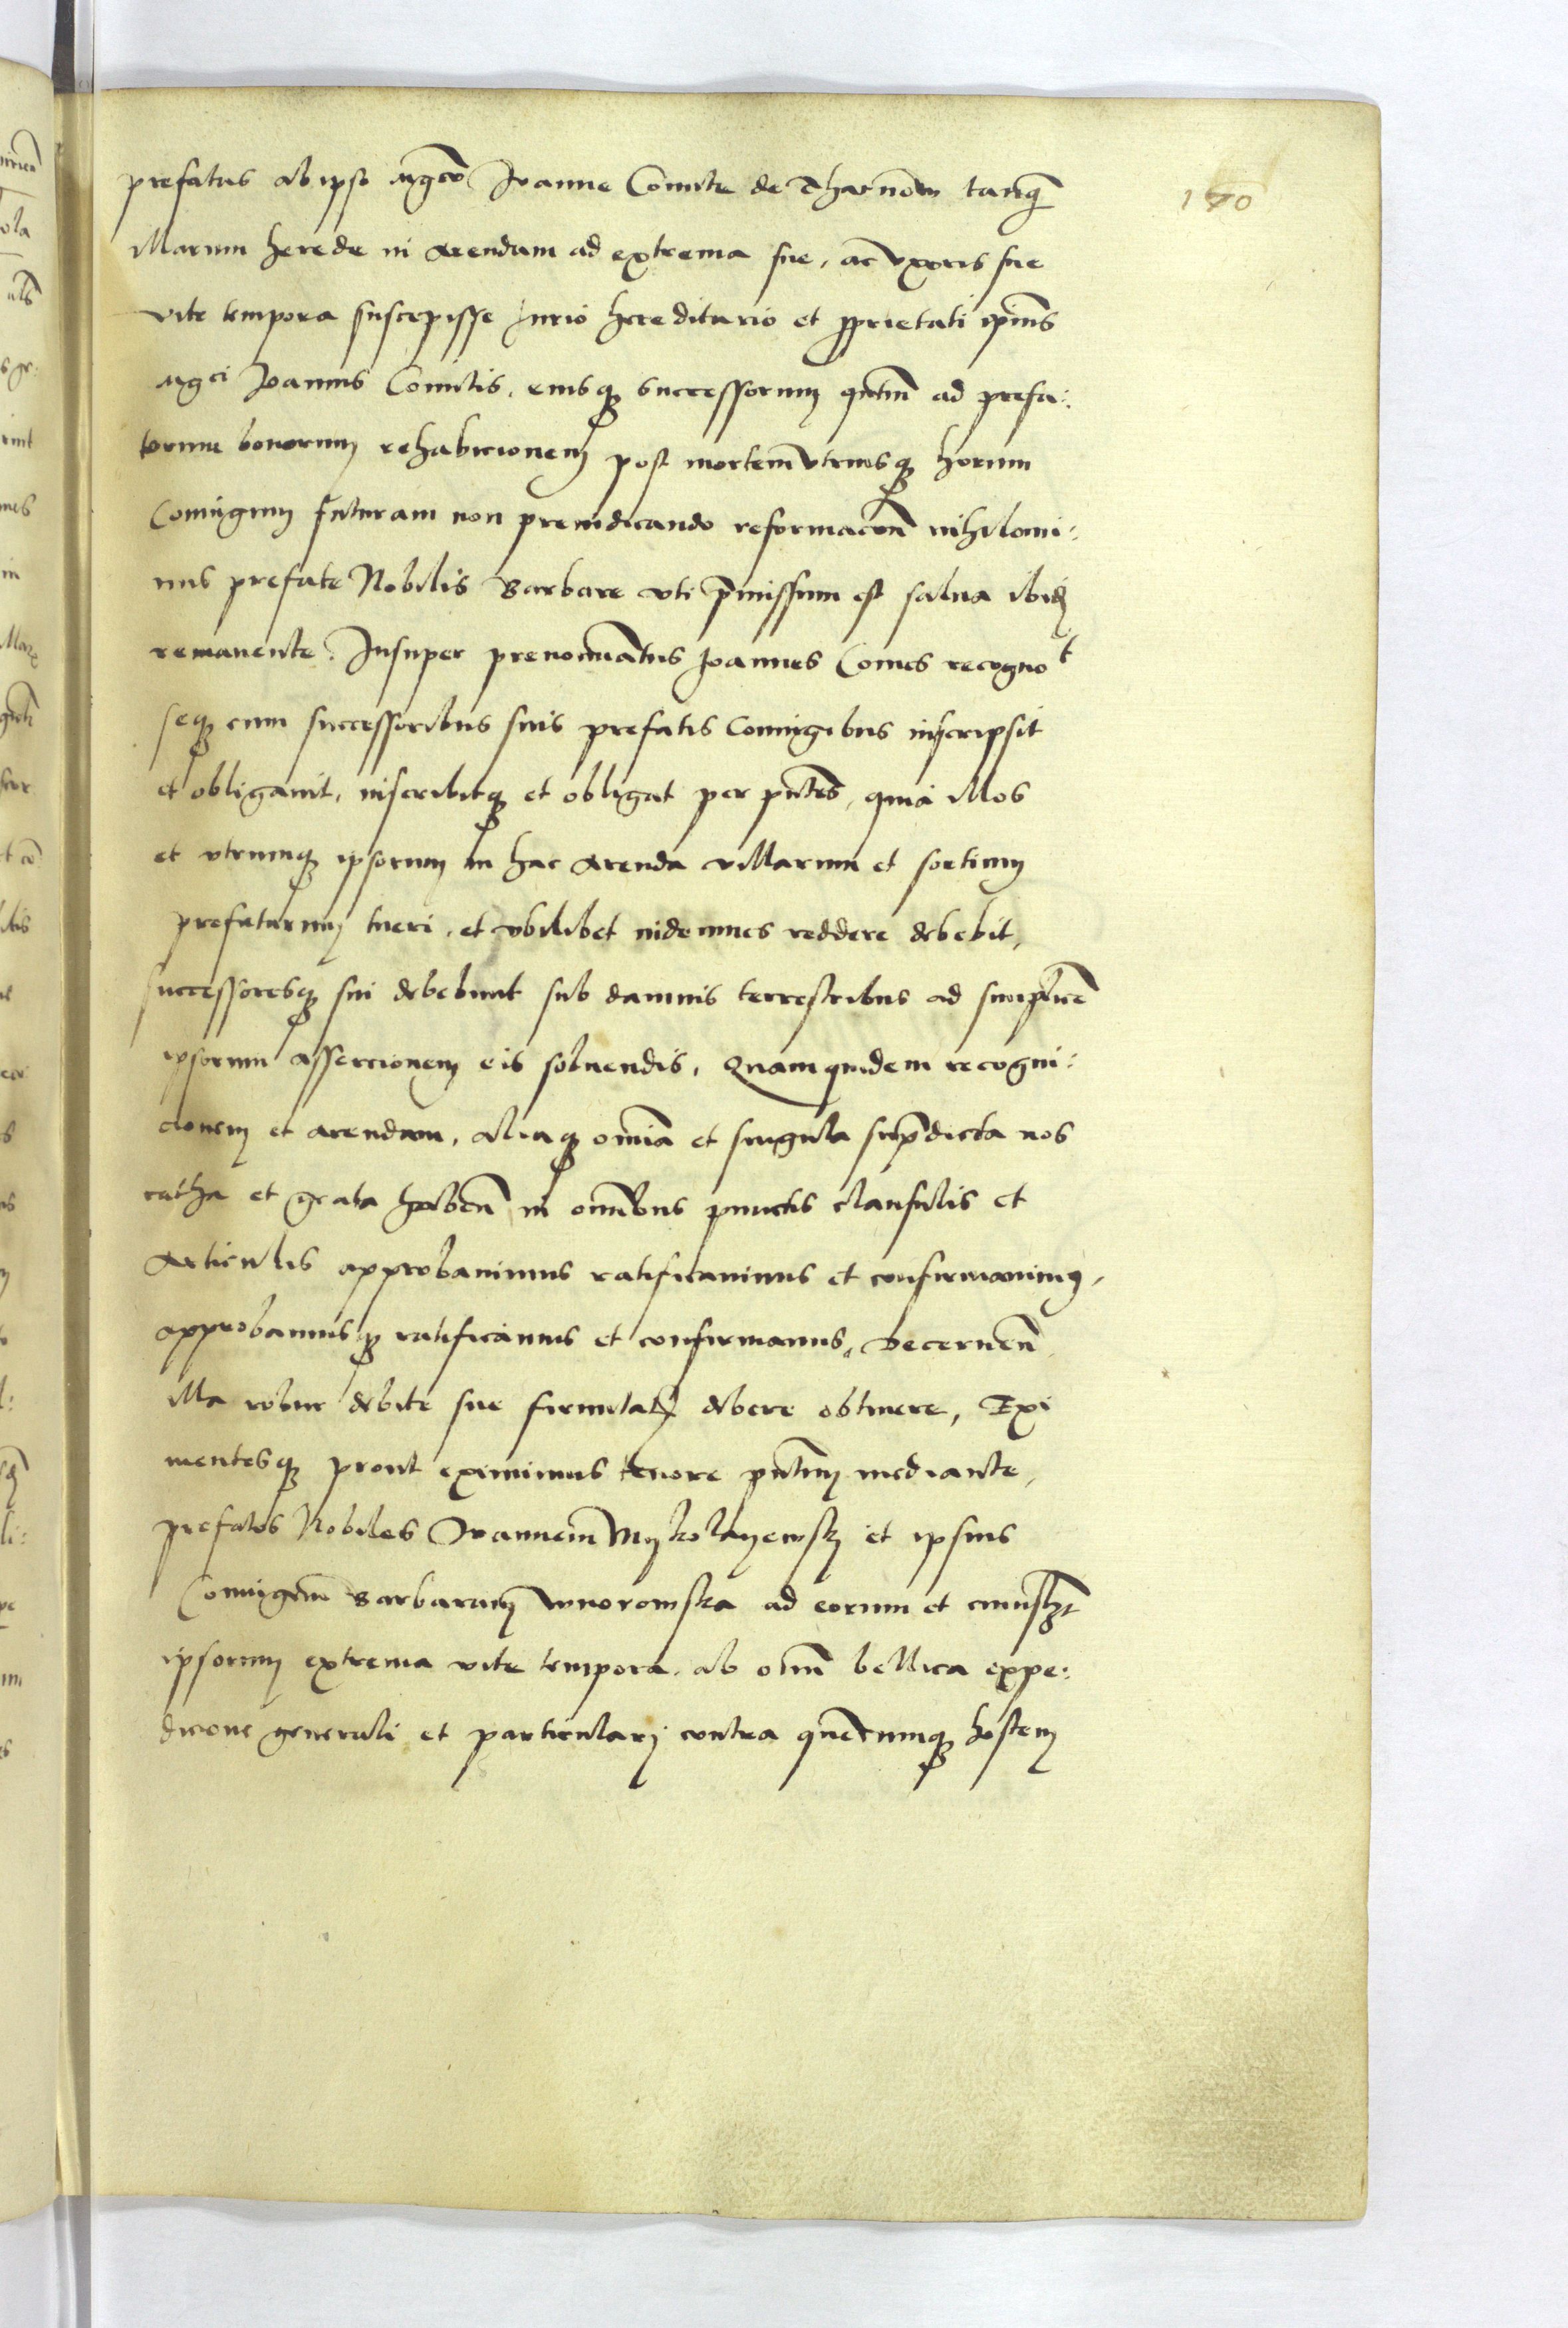 prefatus ab ipso Mgco Joanne Comite de Tharnow tanq̃
illarum herede in arendam ad extrema sue, ac uxoris sue
vite tempora suscepisse Jurio hereditario et pprietati ipius
Mgci Joannis Comitis, eiusq; successorum qntum ad prefa:
torum bonorum rehabicionem post mortem utriusq; horum
Coniugum futuram non preiudicando reformacõne nihilomi:
nus prefate Nobilis Barbare uti p̃missum est salua ibidẽ
remanente. Insuper prenominatus Joannes Comes recognot
seq; cum successoribus suis prefatis Coniugibus inscripsit
et obligauit, inscribitq; et obligat per pñtes, quia illos
et utrumq; ipsorum in hac arenda villarum et sortium
prefatarum tueri, et ubilibet indemnes reddere debebit,
successoresq; sui debebunt sub damnis terrestribus ad simplicẽ
ipsorum assercionem eis soluendis, Quamquidem recogni:
cionem et arendam, aliaq; omnia et singula sup̃dicta nos
ratha et grata habeñ in omnibus punctis clausulis et
articulis approbauimus ratificauimus et confirmauimus,
approbamusq; ratificamus et confirmamus, Decerneñ
illa robur debite sue firmitatis debere obtinere, Exi
mentesq; prout eximimus tenore pñtium mediante,
prefatos Nobiles Joannem Mykolayewsky et ipsius
Coniugem Barbaram Wnorowska ad eorum et cuiuslzt
ipsorum extrema vite tempora, ab omni bellica expe:
dicione generali et particulari contra quẽcumq; hostem
170